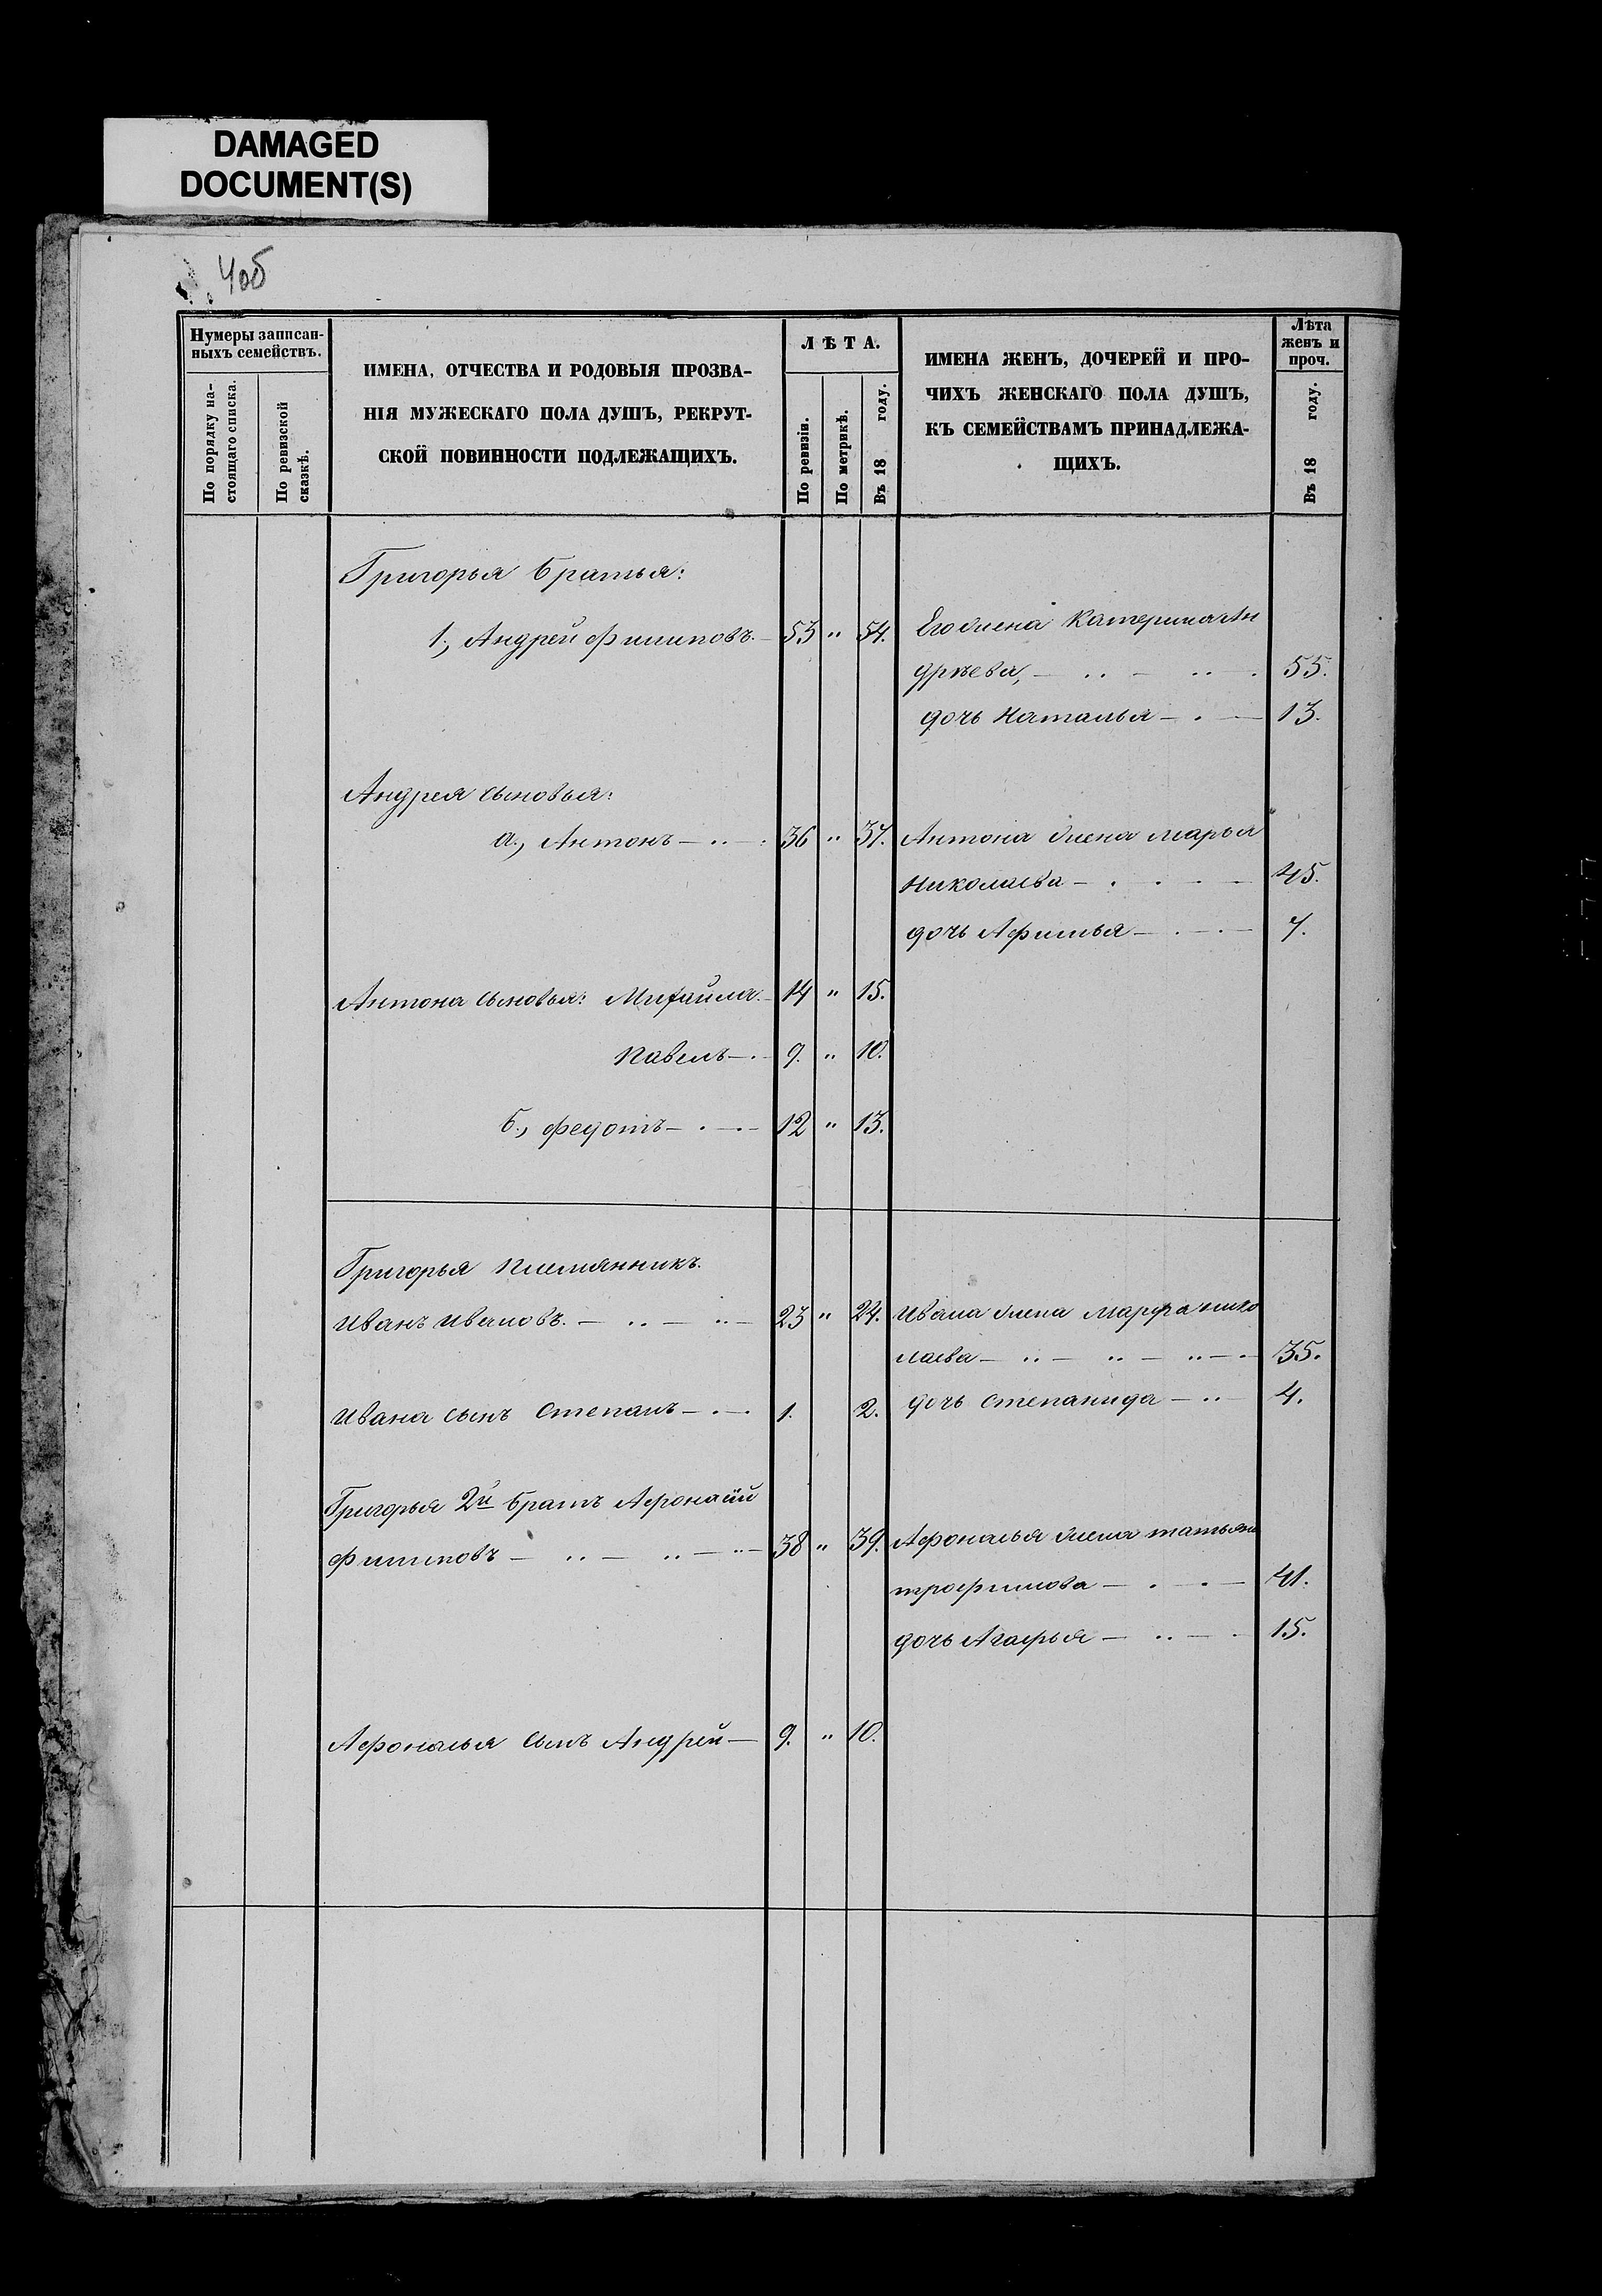 DAMAGED
DOCUMENT(S)
4об
Нумеры записан-
ныхъ семействъ.
По порядку на-
стоящаго списка.
По ревизской
сказкѣ.
ИМЕНА, ОТЧЕСТВА И РОДОВЫЯ ПРОЗВА-
НІЯ МУЖЕСКАГО ПОЛА ДУШЪ, РЕКРУТ-
СКОЙ ПОВИННОСТИ ПОДЛЕЖАЩИХЪ.
ЛѢТА.
По ревизіи.
По метрикѣ.
Въ 18 году.
ИМЕНА ЖЕНЪ, ДОЧЕРЕЙ И ПРО-
ЧИХЪ ЖЕНСКАГО ПОЛА ДУШЪ,
КЪ СЕМЕЙСТВАМЪ ПРИНАДЛЕЖА-
ЩИХЪ.
Лѣта
женъ и
проч.
Въ 18 году.
Григорья братья:
1, Андрей Филиповъ. 53 " 54. Его жена Катерина Ан
дрѣева, 55.
дочь Наталья 13.
Андрея сыновья:
а, Антонъ 36 " 37. Антона жена Марья
Николаева 45.
дочь Афимья 7.
Антона сыновья: Михайла 14 " 15.
Павелъ 9. " 10.
б, Федотъ 12 " 13.
Григорья племянникъ.
Иванъ Ивановъ. 23 " 24. Ивана жена Марфа Нико
лаева 35.
Ивана сынъ Степанъ 1. 2. дочь Степанида 4.
Григорья 2й братъ Афонасій
Филиповъ 38 " 39. Афонасья жена Татьяна
Трофимова 41.
дочь Агафья 15.
Афонасья сынъ Андрей 9. " 10.